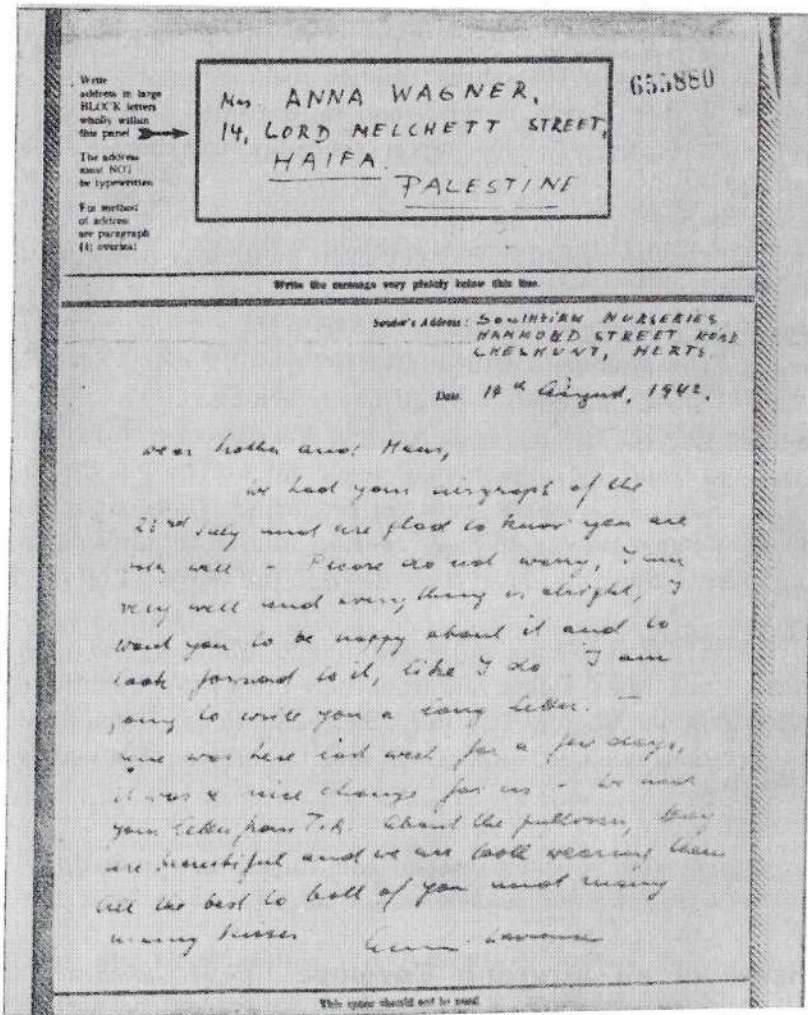 Write
address in large
BLOCK letters
wholly within
this panel
The address
must NOT
be typewritten
For method
of address
see paragraph
(4) overleaf
Mrs ANNA WAGNER,
14, LORD MELCHETT STREET,
HAIFA.
PALESTINE
655880
Write the message very plainly below this line.
Sender's Address: SOUTHERN NURSERIES
HAMMOND STREET ROAD
CHESHUNT, HERTS.
Date 19th August, 1942.
Dear Mother and Hans,
We had your airgraph of the
23rd July and are glad to know you are
both well - Please do not worry, I am
very well and everything is alright, I
want you to be happy about it and to
look forward to it, like I do I am
going to write you a long letter. -
was here last week for a few days,
it was a nice change for us - We had
your letter from T.A. about the pullovers, they
are beautiful and we are both wearing them
All the best to both of you and many
many kisses
This space should not be used